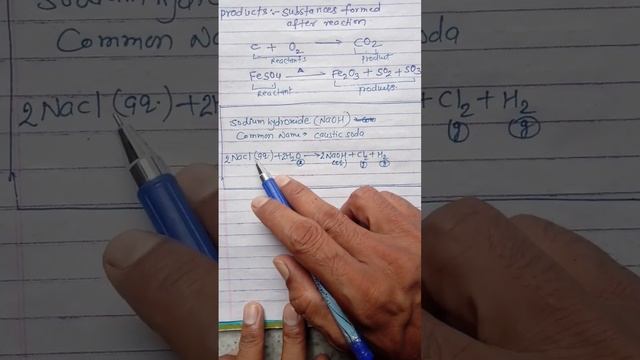 products:- Substances formed
after reaction
C + O2 → CO2
Reactants Product
FeSO4 Δ→ Fe2O3 + SO2 + SO3
Reactant products
Sodium hydroxide (NaOH)
Common Name → caustic soda
2NaCl (aq.) + 2H2O → 2NaOH + Cl2 + H2
(aq.) (g) (g)